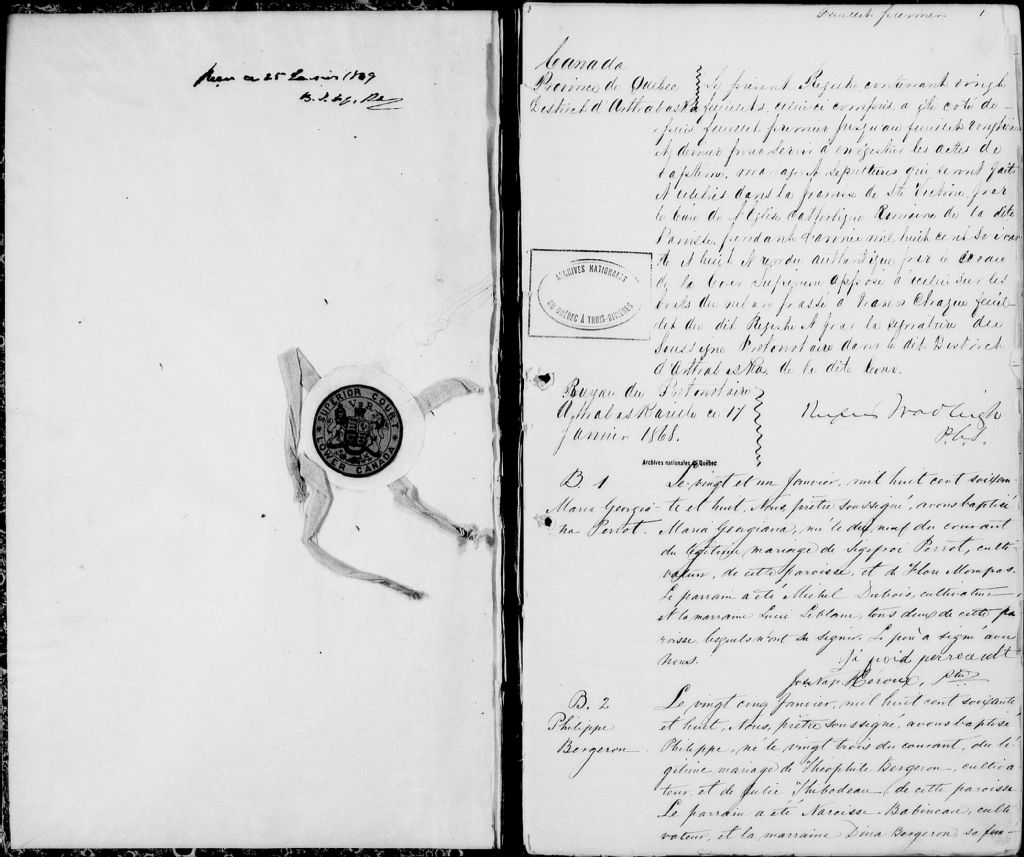 Reçu ce 25 Janvier 1869
SUPERIOR COURT
V R
LOWER CANADA
feuillet premier 1
Canada
Province de Québec
District d'Arthabaska
Le présent Registre contenant vingt
feuillets, celui ci compris a été coté de-
puis feuillet premier jusqu'au feuillet vingtième
et dernier pour servir à enrégistrer les actes de
baptême, mariage et sépultures qui seront faits
et célébrés dans la paroisse de Ste Victoire, par
le Curé de l'Eglise Catholique Romaine de la dite
Paroisse, pendant l'année mil huit cent soixan
te et huit et rendu authentique par le sceau
de la Cour Supérieure apposé à icelui sur les
bouts du ruban passé à travers chaque feuil-
let du dit Registre et par la signature du
Soussigné Protonotaire dans le dit District
d'Arthabaska, de la dite Cour.
ARCHIVES NATIONALES
DU QUÉBEC À TROIS-RIVIÈRES
Bureau du Protonotaire
Arthabaskaville ce 17
Janvier 1868.
P.C.S.
Archives nationales du Québec
B. 1
Maria Georgia-
na Perrot.
Le vingt et un Janvier, mil huit cent soixan
te et huit, Nous prêtre soussigné, avons baptisé
Maria Georgiana, née le dix neuf du courant
du légitime mariage de Sigefroi Perrot, culti-
vateur, de cette paroisse, et de Flore Mompas.
Le parrain a été Michel Dubois, cultivateur
et la marraine Luce Leblanc, tous deux de cette pa
roisse, lesquels n'ont su signer. Le père a signé avec
nous.
perreault
Héroux, Ptre
B. 2
Philippe
Bergeron
Le vingt cinq Janvier, mil huit cent soixante
et huit, Nous, prêtre soussigné, avons baptisé
Philippe, né le vingt trois du courant, du lé-
gitime mariage de Théophile Bergeron, cultiva-
teur, et de Julie Thibodeau de cette paroisse
Le parrain a été Narcisse Babineau, culti
vateur, et la marraine Dina Bergeron, sa fem-